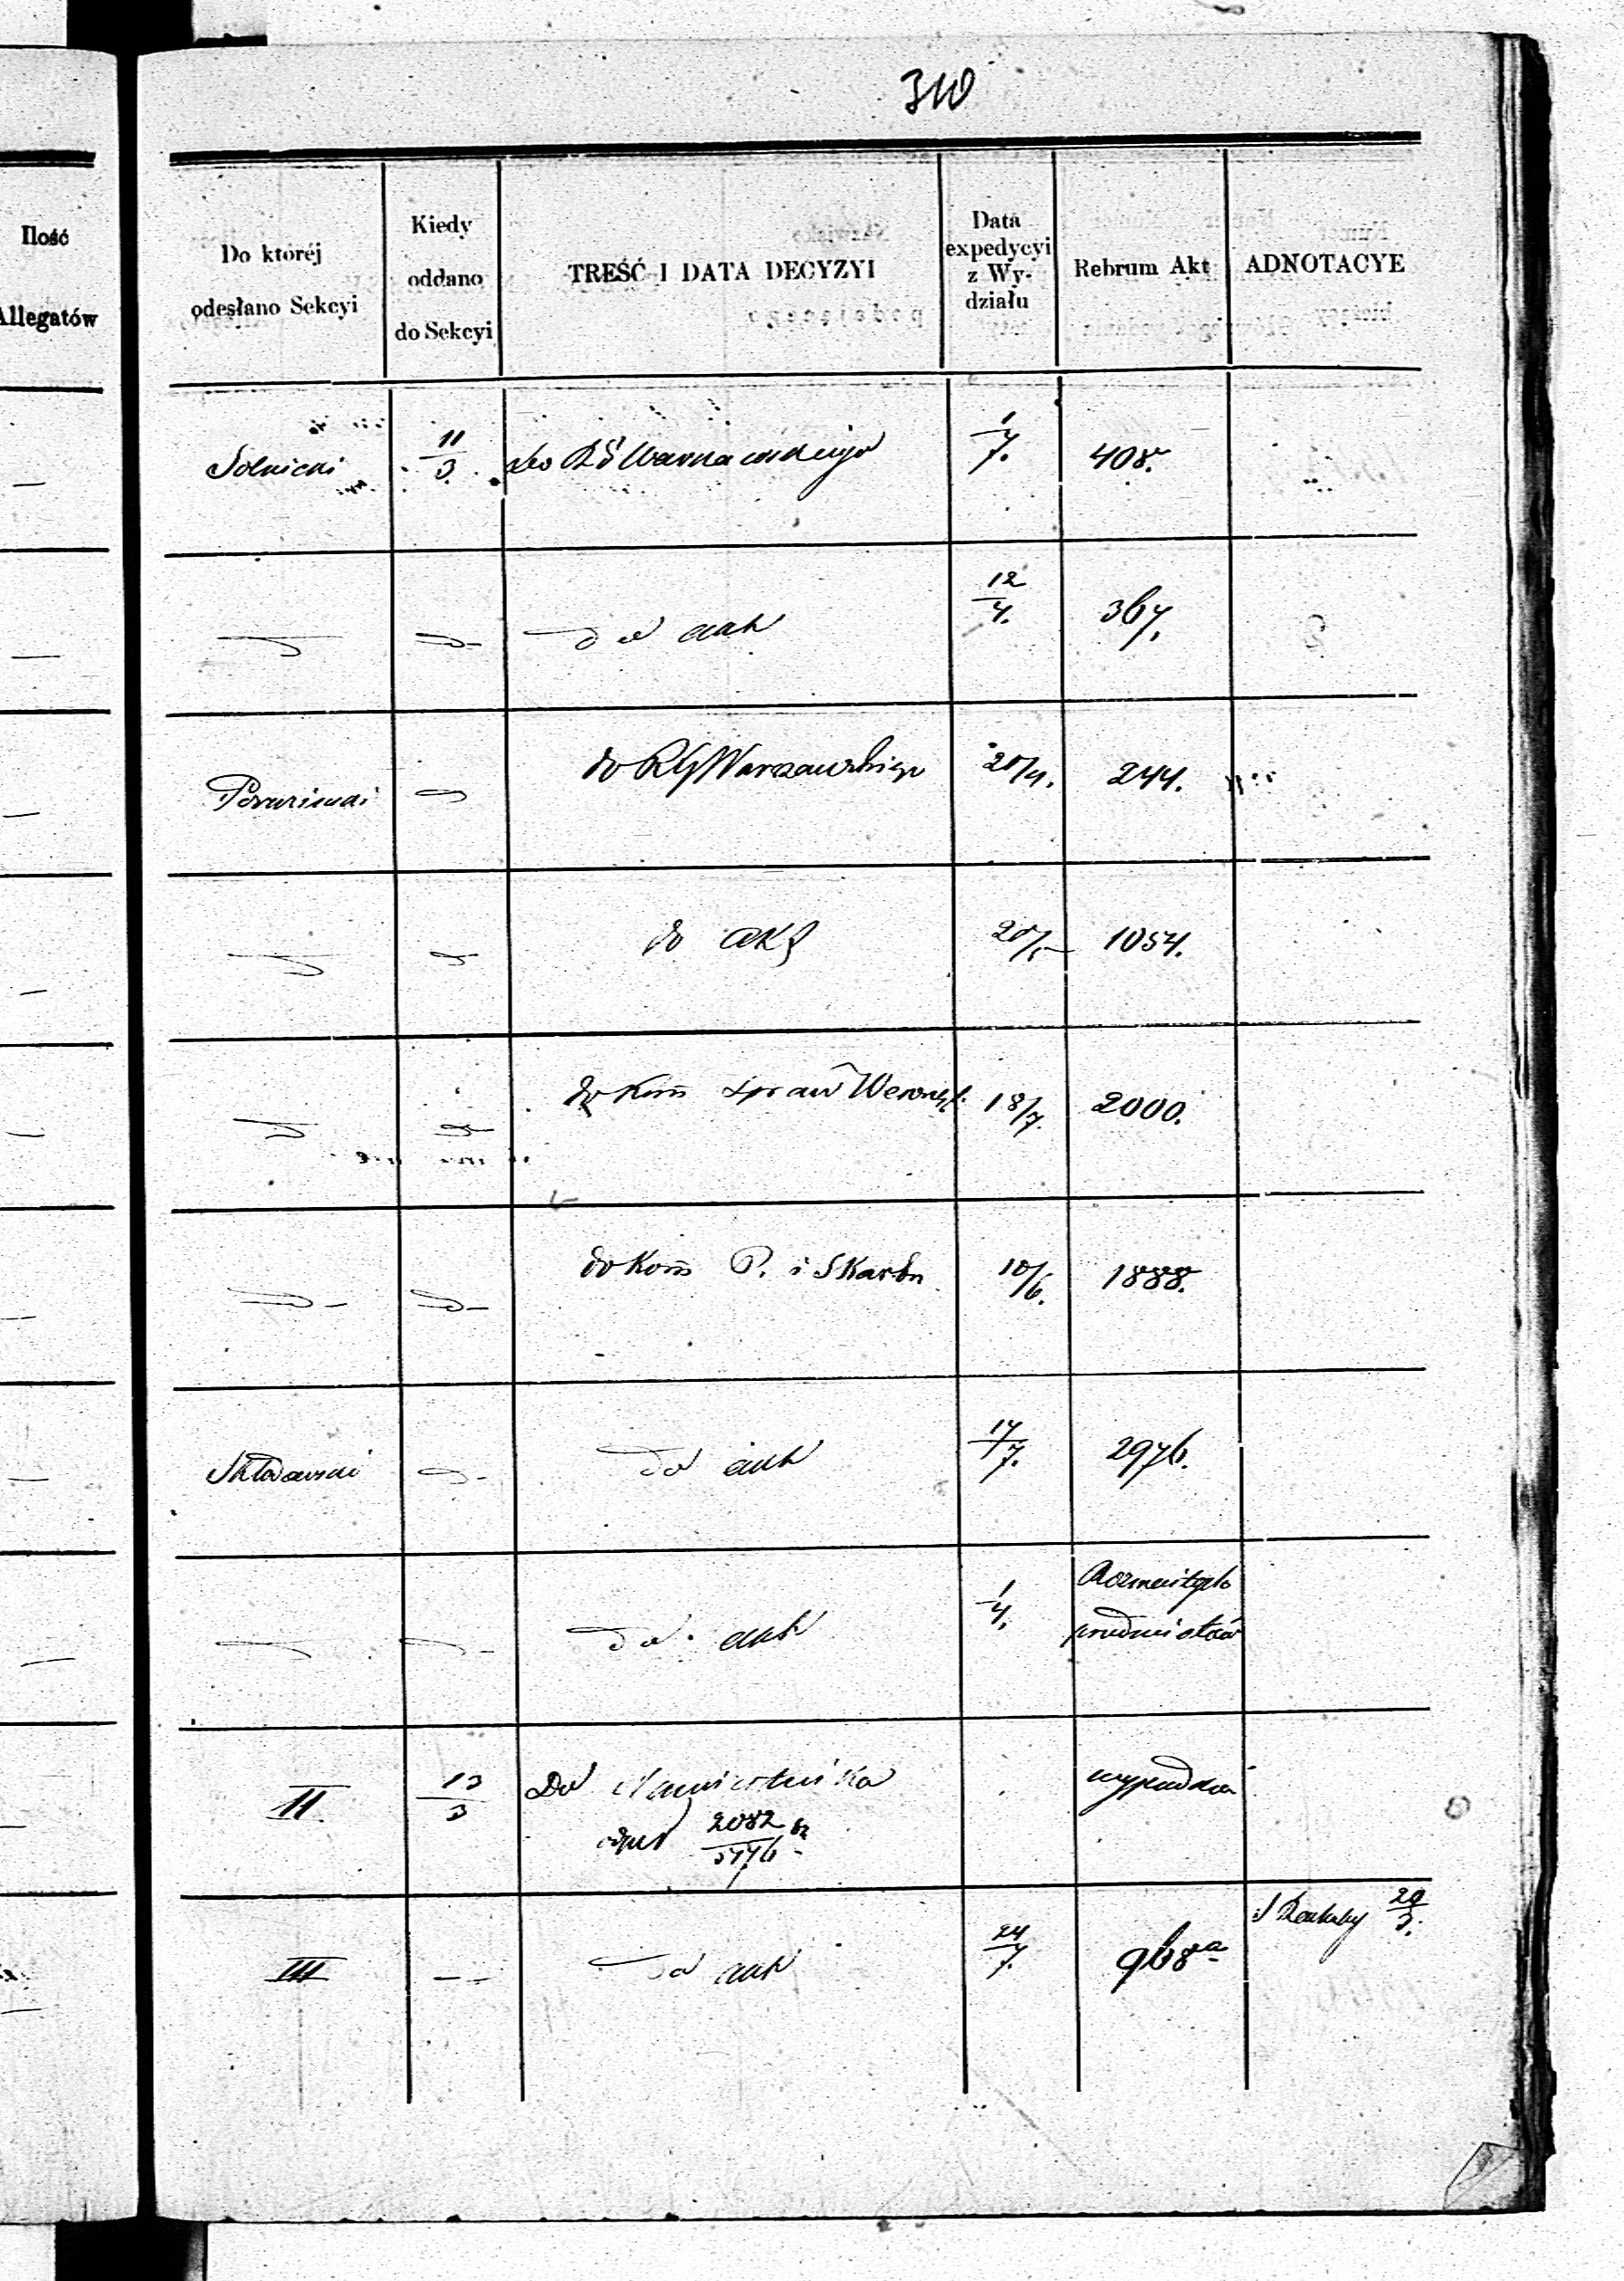 310
Ilość
Allegatów
Do któréj
odesłano Sekcyi
Kiedy
oddano
do Sekcyi
TREŚĆ I DATA DECYZYI
Data
expedycyi
z Wy-
działu
Rebrum Akt
ADNOTACYE
Solnicki 11/3 do RG Warszawskiego 1/7. 408.
do akt 12/4. 367.
do RG Warszawskiego 20/4. 244.
do akt 1054.
do Kom Spraw Wewnęt. 18/7. 2000.
do Kom P. i Skarbu 10/6. 1888.
Skłodowski do akt 17/7. 2976.
do akt 1/4. Rozmaitych
przedmiotów
II 13/3 Do Namiestnika
2082
III do akt 24/7. 968a 29/3.